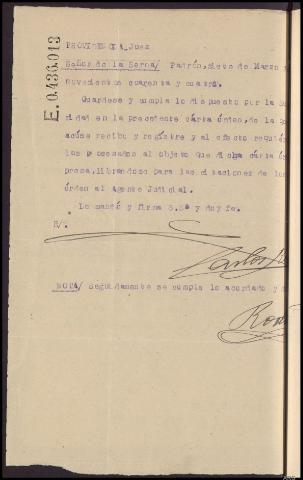 E.0.436.013
PROVIDENCIA, Juez
Señor de la Serna/ Padrón, siete de Marzo
novecientos cuarenta y cuatro.
Guárdese y cumpla lo dispuesto por la
ridad en la precedente cárta órden, de la
acúse recibo y regístre y al efecto requiér
los procesados al objeto que dicha cárta
presa, librándose para las citaciones de los
órden al Agente Judicial.
Lo mandó y firma S.Sª y doy fe.
E/.
Carlos
NOTA/ Seguidamente se cumple lo acordado y